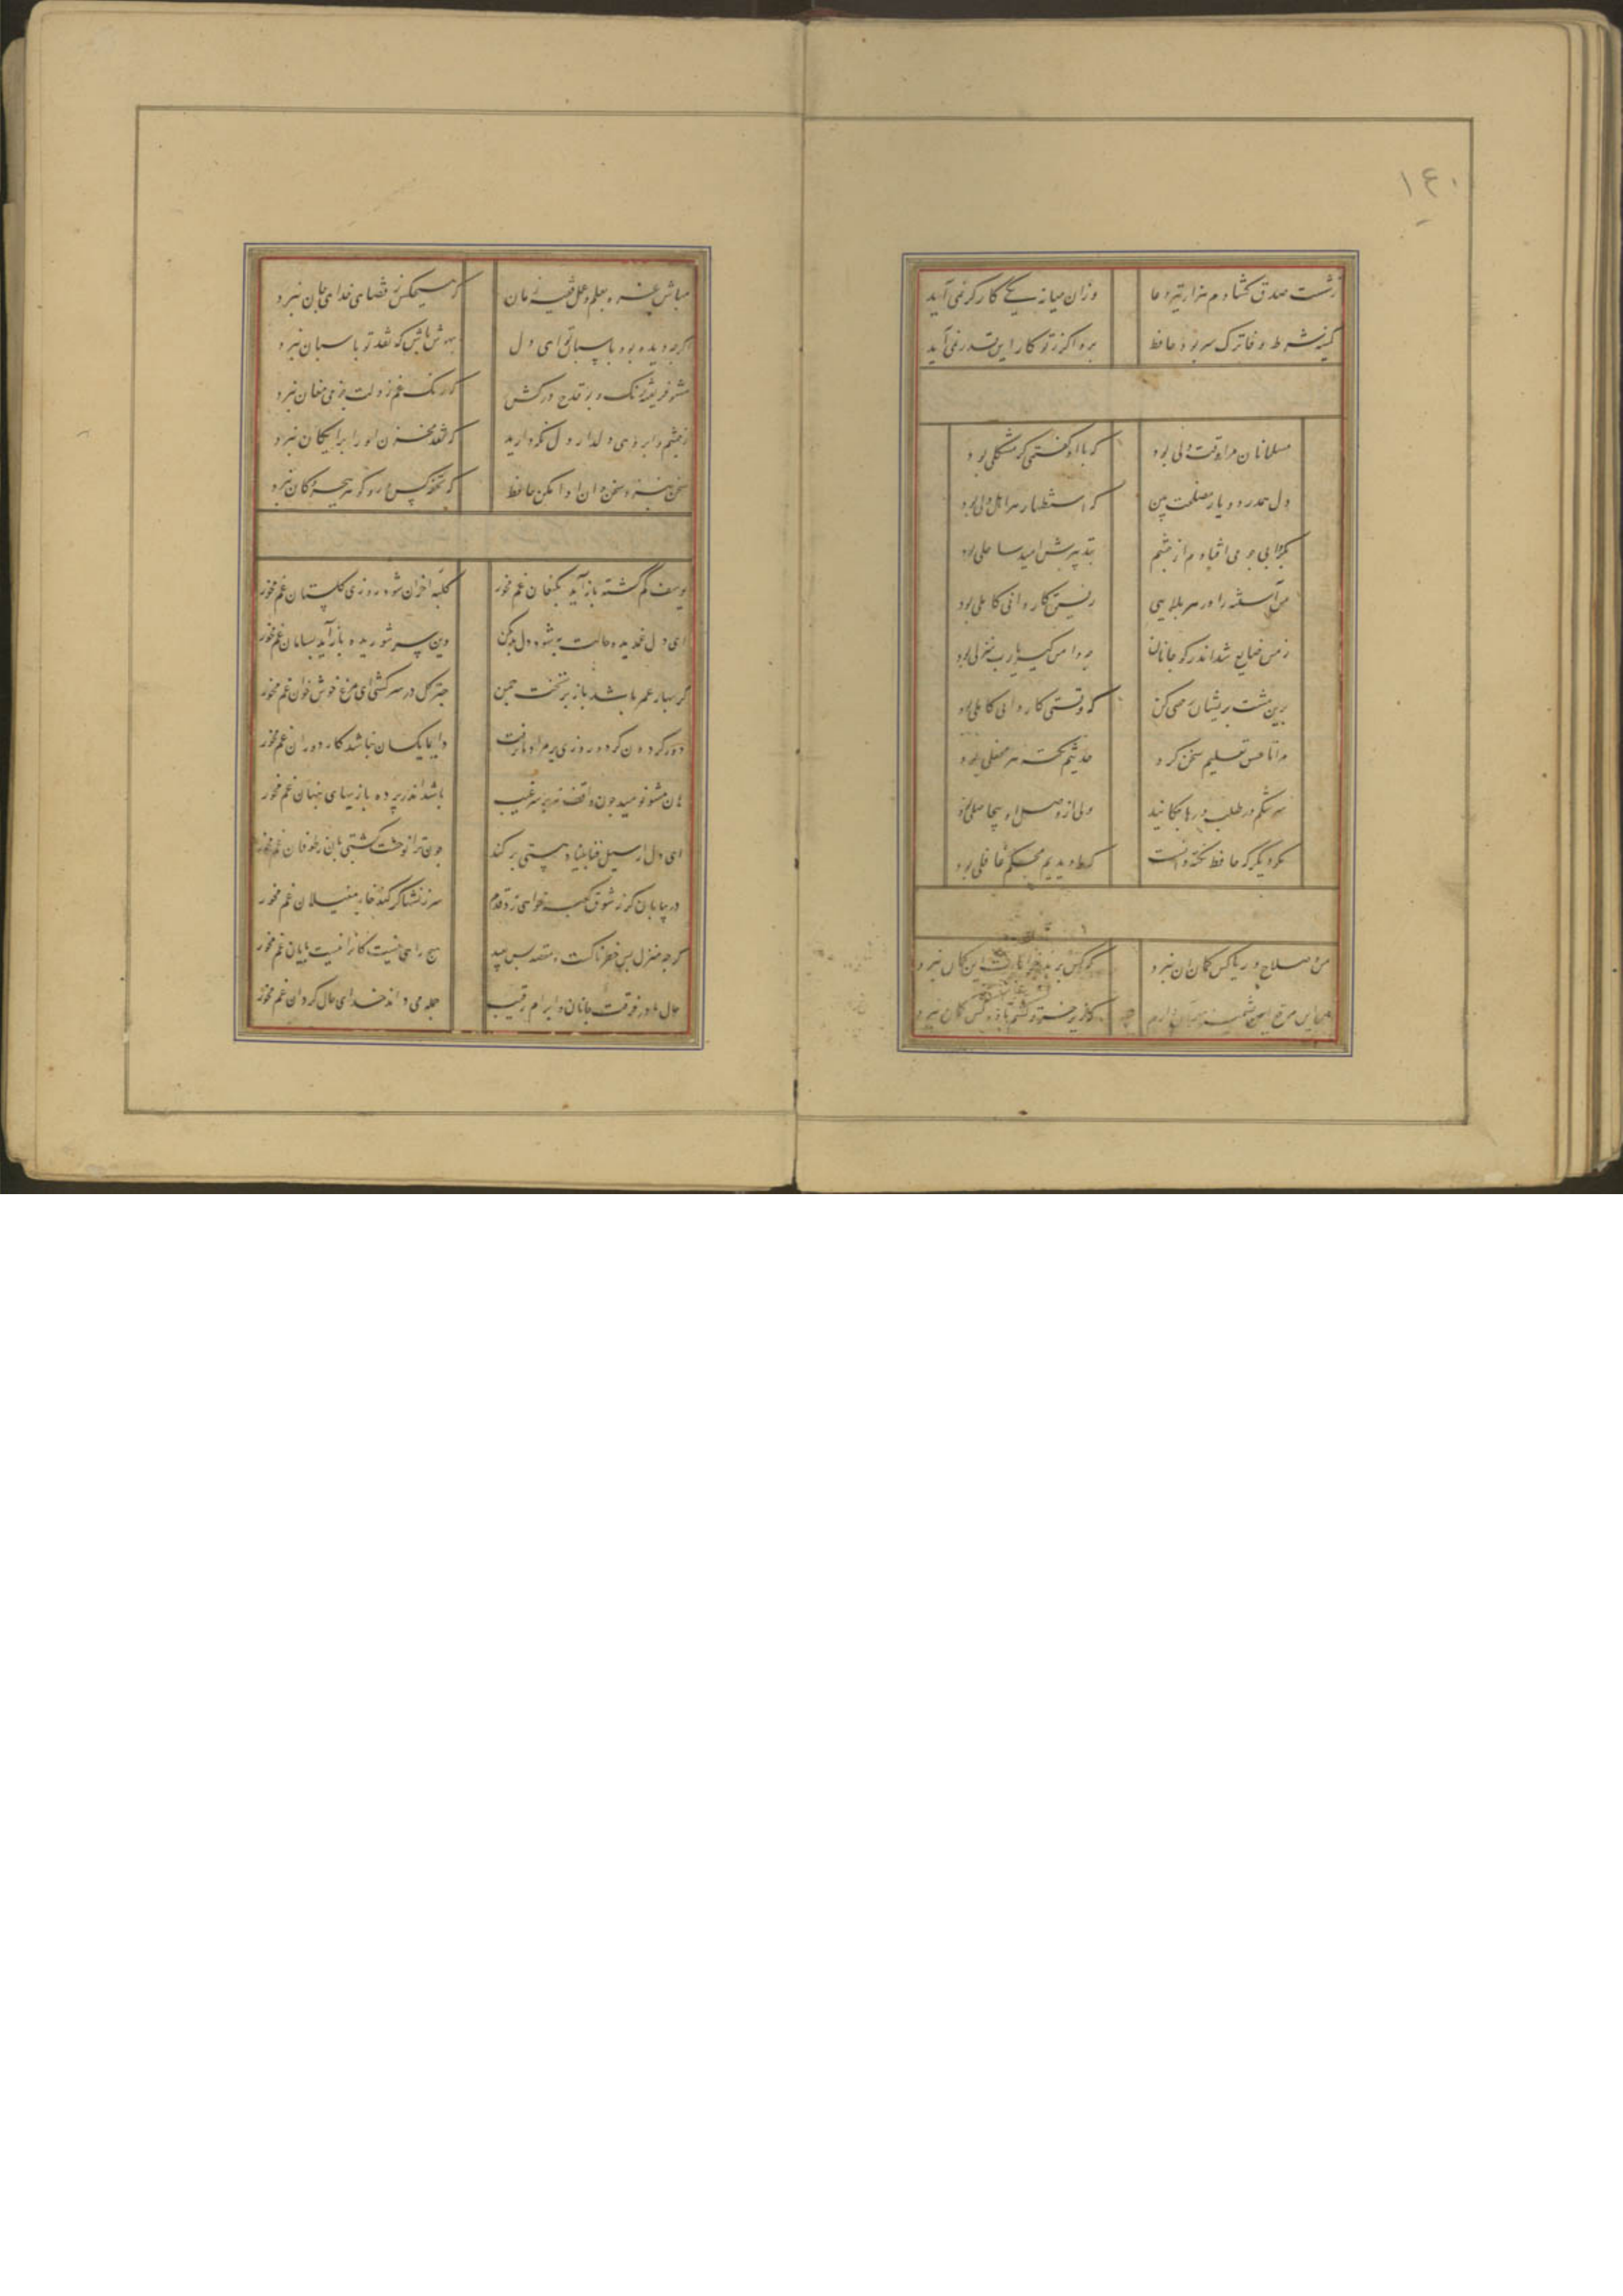 ۱۴۰
زشست صدق کشادم هزار تیر دعا وزان میانه یکی کارکر نمی آید
کمینه شرط وفا ترک سر بود حافظ برو اکر ز تو کار این قدر نمی آید
مسلمانان مرا وقتی دلی بود که با او گفتمی کر مشکلی بود
دل همدرد و یار مصلحت بین که استظهار هر اهل دلی بود
بکردابی چو می افتادم از چشم بتدبیرش امید ساحلی بود
من آشفته را در هر بلایی رفیق کاردانی کاملی بود
ز من ضایع شد اندر کوی جانان چه دامن کیر یارب منزلی بود
برین مست پریشان رحمی کن که وقتی کاردانی کاملی بود
مرا تا عشق تعلیم سخن کرد حدیثم نکته هر محفلی بود
سرشکم در طلب درها چکانید ولی از وصل او بیحاصلی بود
مکو دیگر که حافظ نکته دانست که ما دیدیم محکم غافلی بود
من و صلاح و ریا کس کمان ان نبرد که کس برند خرابات این کمان نبرد
من این مرقع پشمینه بهر آن دارم که زیر خرقه کشم باده کس کمان نبرد
مباش غره بعلم و عمل فقیه زمان که هیچکس ز قضای خدای جان نبرد
اکرچه دیده بود پاسبان تو ای دل بهوش باش که نقد تو پاسبان نبرد
مشو فریفته رنک و بو قدح درکش که رنک غم ز دلت جز می مغان نبرد
ز چشم و ابروی دلدار دل نکه دارید که نقد مخزن او را برایکان نبرد
سخن بنزد سخن دان ادا مکن حافظ که تحفه کس در و کوهر ببحر و کان نبرد
یوسف کم گشته باز آید بکنعان غم مخور کلبه احزان شود روزی کلستان غم مخور
ای دل غمدیده حالت به شود دل بد مکن وین سر شوریده باز آید بسامان غم مخور
کر بهار عمر باشد باز بر تخت چمن چتر کل در سر کشی ای مرغ خوش خوان غم مخور
دور کردون کر دو روزی بر مراد ما نرفت دایما یکسان نباشد کار دوران غم مخور
هان مشو نومید چون واقف نه بر سر غیب باشد اندر پرده بازیهای پنهان غم مخور
ای دل ار سیل فنا بنیاد هستی بر کند چون ترا نوحست کشتی بان ز طوفان غم مخور
در بیابان کر ز شوق کعبه خواهی زد قدم سرزنشها کر کند خار مغیلان غم مخور
کرچه منزل بس خطرناکست و مقصد بس بعید هیچ راهی نیست کانرا نیست پایان غم مخور
حال ما در فرقت جانان و ابرام رقیب جمله می داند خدای حال کردان غم مخور